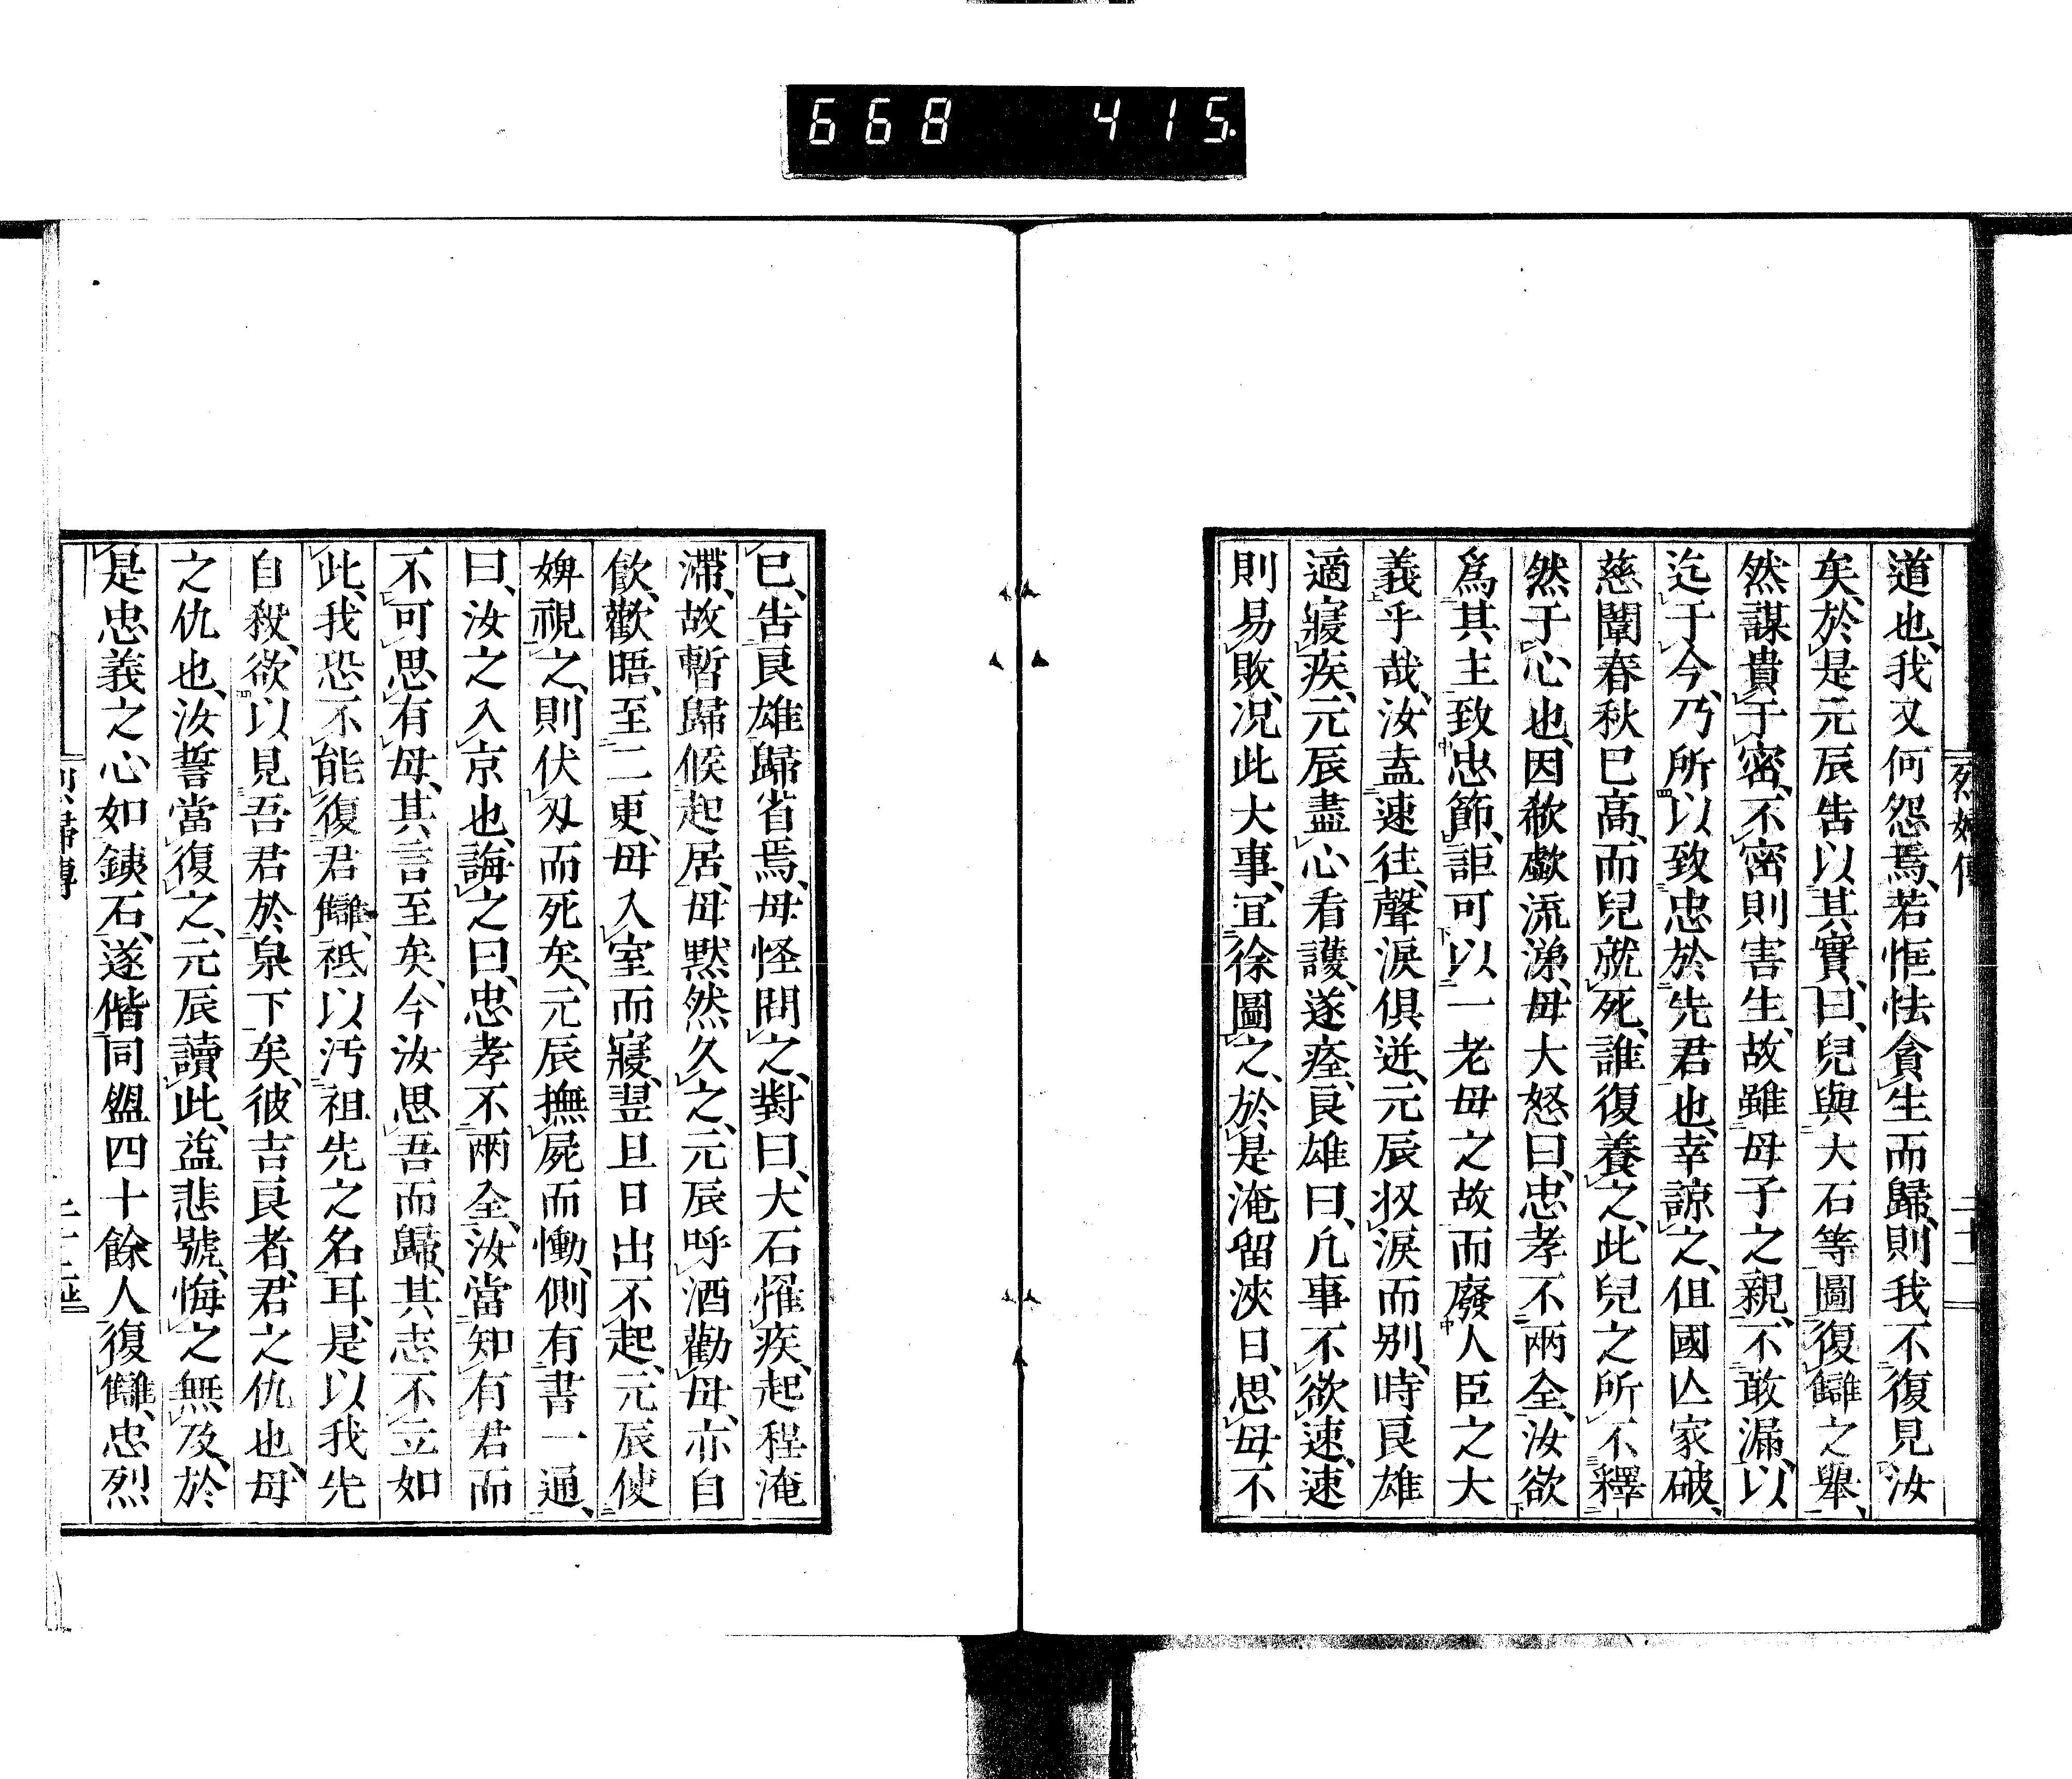 668 415.
烈婦傳
二十一
道也、我又何怨焉、若恇怯貪生而歸、則我不復見汝
矣、於是元辰告以其實、曰、兒與大石等圖復讎之舉、
然謀貴于密、不密則害生、故雖母子之親、不敢漏、以
迄于今、乃所以致忠於先君也、幸諒之、但國亾家破、
慈闈春秋已高、而兒就死、誰復養之、此兒之所不釋
然于心也、因欷歔流涕、母大怒曰、忠孝不兩全、汝欲
爲其主致忠節、詎可以一老母之故而廢人臣之大
義乎哉、汝盍速往、聲淚俱迸、元辰収淚而别、時良雄
適寢疾、元辰盡心看護、遂痊、良雄曰、凡事不欲速、速
則易敗、况此大事、宜徐圖之、於是淹留浹日、思母不
已、告良雄歸省焉、母怪問之、對曰、大石罹疾、起程淹
滯、故暫歸候起居、母默然久之、元辰呼酒勸母、亦自
飮、歡晤至二更、母入室而寢、翌旦日出不起、元辰使
婢視之、則伏刄而死矣、元辰撫屍而慟、側有書一通、
曰、汝之入京也、誨之曰、忠孝不兩全、汝當知有君而
不可思有母、其言至矣、今汝思吾而歸、其志不立如
此、我恐不能復君讎、祗以汚祖先之名耳、是以我先
自殺、欲以見吾君於泉下矣、彼吉良者、君之仇也、母
之仇也、汝誓當復之、元辰讀此、益悲號、悔之無及、於
是忠義之心如銕石、遂偕同盟四十餘人復讎、忠烈